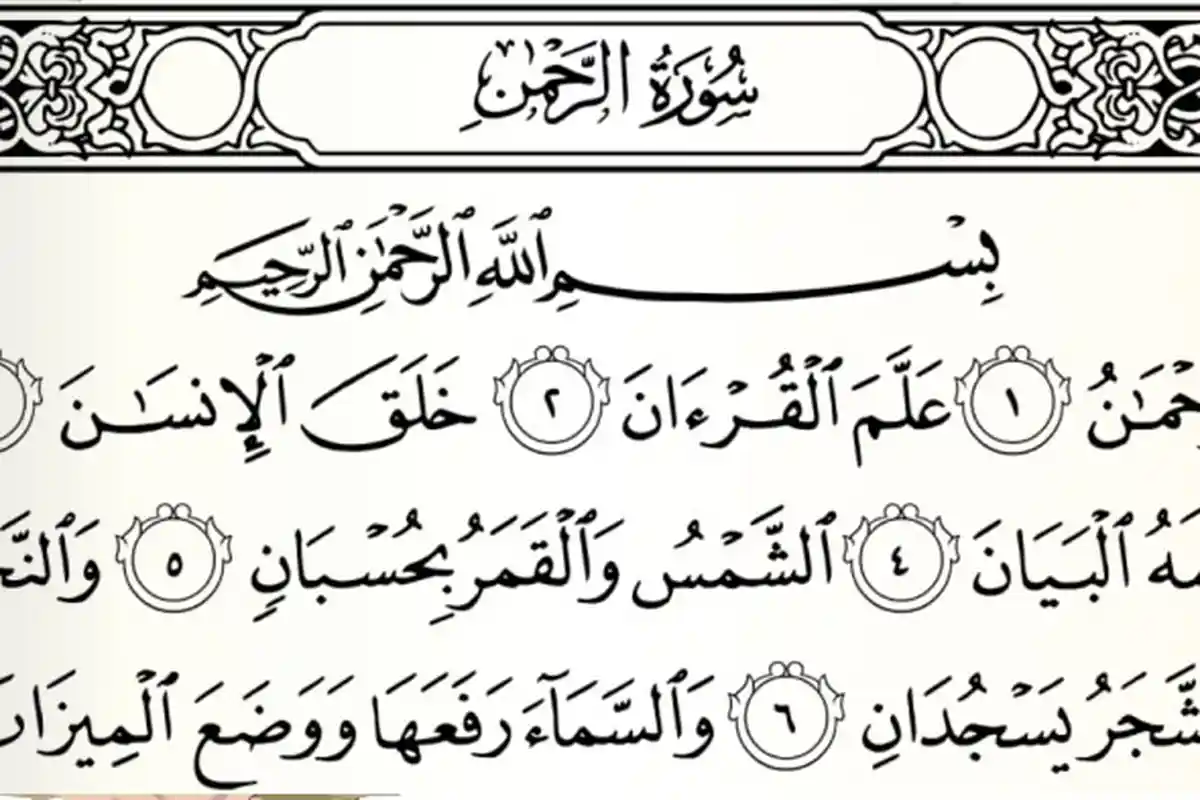 سُورَةُ الرَّحْمٰنِ
بِسْمِ ٱللَّهِ ٱلرَّحْمَٰنِ ٱلرَّحِيمِ
حْمَٰنُ ١ عَلَّمَ ٱلْقُرْءَانَ ٢ خَلَقَ ٱلْإِنسَٰنَ
مَهُ ٱلْبَيَانَ ٤ ٱلشَّمْسُ وَٱلْقَمَرُ بِحُسْبَانٍ ٥ وَٱلنَّجْ
شَّجَرُ يَسْجُدَانِ ٦ وَٱلسَّمَآءَ رَفَعَهَا وَوَضَعَ ٱلْمِيزَانَ